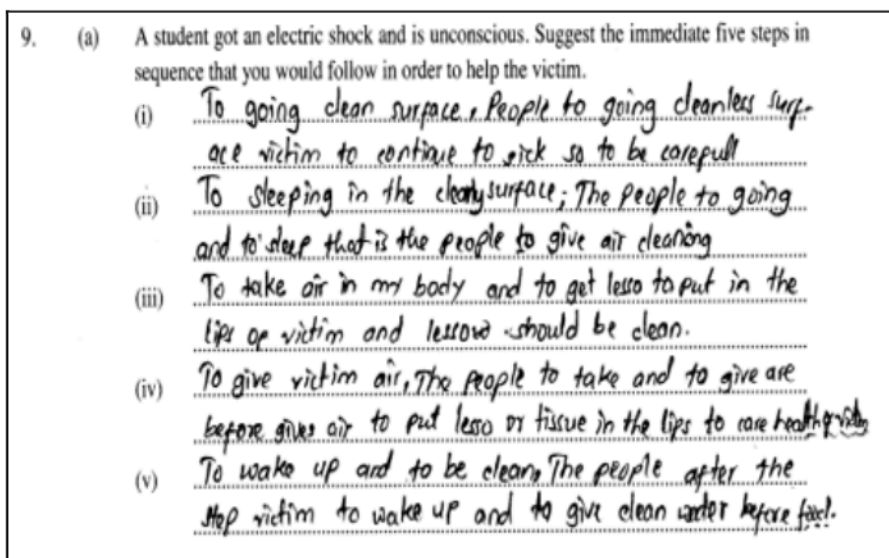 9. (a) A student got an electric shock and is unconscious. Suggest the immediate five steps in
sequence that you would follow in order to help the victim.
(i) To going clean surface, People to going cleanless surf-
ace victim to continue to sick so to be carepull
(ii) To sleeping in the cleanly surface; The people to going
and to sleep that is the people to give air cleaning
(iii) To take air in my body and to get lesso to put in the
lips op victim and should be clean.
(iv) To give victim air, The people to take and to give are
before gives air to put lesso or tissue in the lips to care health
(v) To wake up and to be clean, The people apter the
step victim to wake up and to give clean water before food.